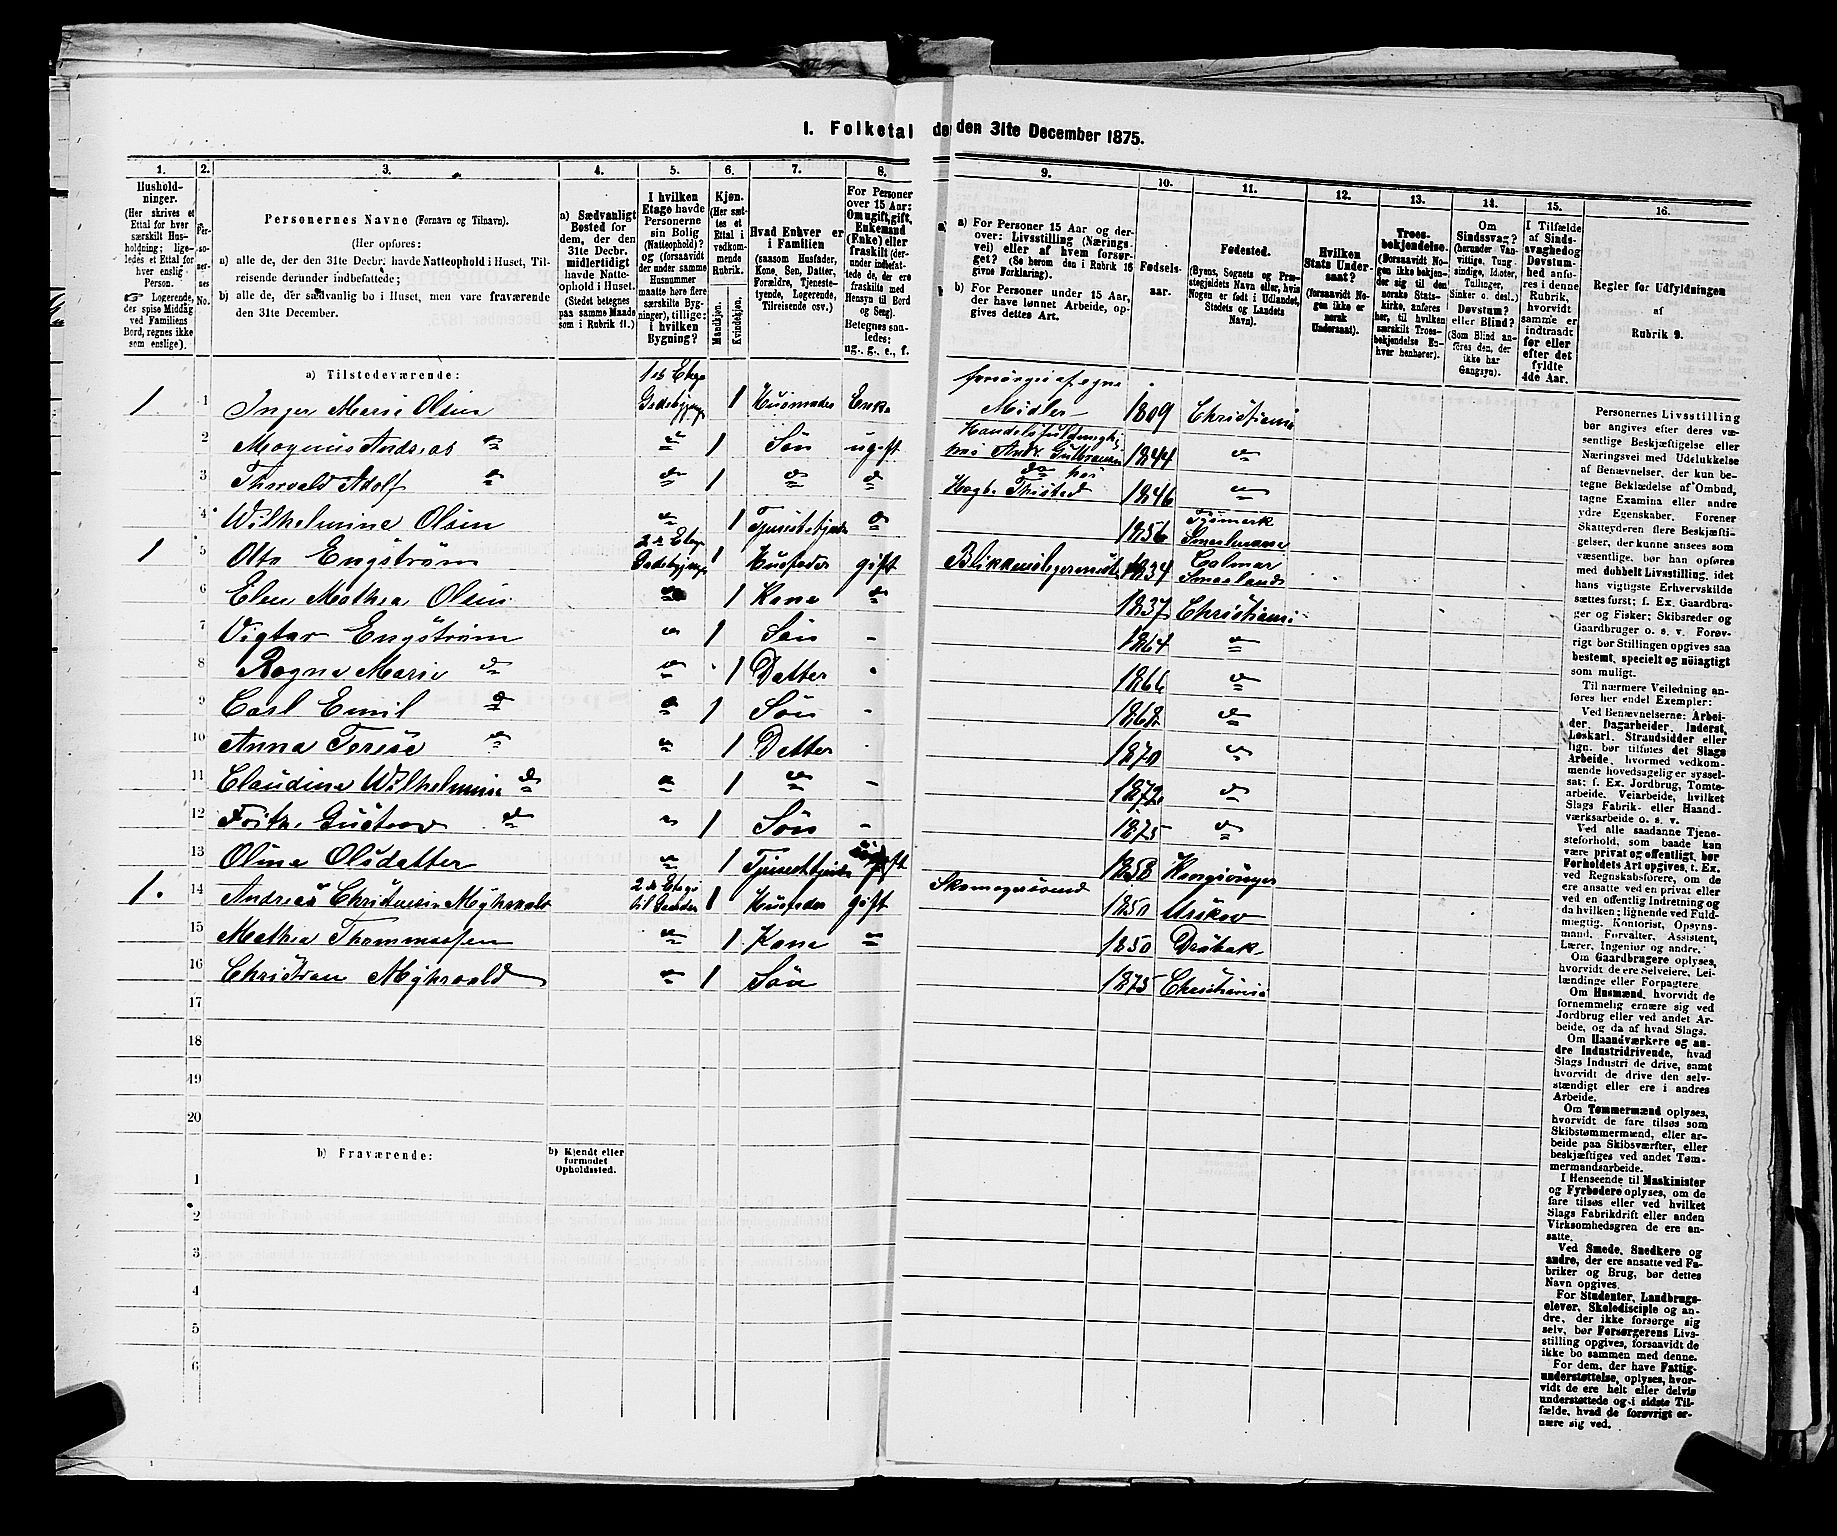 I. Folketal den 31te December 1875.
1. 2. 3. 4. 5. 6. 7. 8. 9. 10. 11. 12. 13. 14. 15. 16.
Husholdninger.
(Her skrives et
Ettal for hver
særskilt Husholdning;
ligeledes et Ettal for
hver enslig
Person.
Logerende,
der spise Middag
ved Familiens
Bord, regnes ikke
som enslige).
Personernes No.
Personernes Navne (Fornavn og Tilnavn).
(Her opføres:
a) alle de, der den 31te Decbr. havde Natteophold i Huset, Tilreisende
derunder indbefattede;
b) alle de, der sædvanlig bo i Huset, men vare fraværende
den 31te December.
a) Sædvanligt
Bosted for
dem, der den
31te Decbr.
midlertidigt
havde Natteophold
i Huset.
(Stedet betegnes
paa samme Maade
som i Rubrik 11.)
I hvilken
Etage havde
Personerne
sin Bolig
(Natteophold)?
og (forsaavidt
der under samme
Husnummer
maatte høre flere
særskilte Bygninger),
tillige:
i hvilken
Bygning?
Kjøn.
(Her sættes
et
Ettal i
vedkommende
Rubrik.
Mandkjøn.
Kvindekjøn.
Hvad Enhver er
i Familien
(saasom Husfader,
Kone, Søn, Datter,
Forældre, Tjenestetyende,
Logerende,
Tilreisende osv.)
For Personer
over 15 Aar:
Om ugift, gift,
Enkemand
(Enke) eller
fraskilt (derunder
indbefattede
de, der ere
fraskilte med
Hensyn til Bord
og Seng)
Betegnes saaledes:
ug., g., e., f.
a) For Personer 15 Aar og derover:
Livsstilling (Næringsvei)
eller af hvem forsørget?
(Se herom den i Rubrik 16
givne Forklaring).
b) For Personer under 15 Aar,
der have lønnet Arbeide, opgives
dettes Art.
Fødselsaar.
Fødested.
(Byens, Sognets og Præstegjeldets
Navn eller, hvis
Nogen er født i Udlandet,
Stedets og Landets
Navn).
Hvilken
Stats Undersaat?
(forsaavidt Nogen
ikke er
norsk
Undersaat).
Troesbekjendelse.
(Forsaavidt Nogen
ikke bekjender
sig til den
norske Statskirke,
anføres
her, til hvilken
særskilt Troesbekjendelse
Enhver
henhører).
Om
Sindssvag?
(herunder Vanvittige,
Tungsindige,
Idioter,
Tullinger,
Sinker o. desl.)
Døvstum?
eller Blind?
(Som Blind anføres
den, der
ikke har
Gangsyn).
I Tilfælde
af Sindssvaghed
og
Døvstumhed
anføres
i denne
Rubrik,
hvorvidt
samme er
indtraadt
før eller
efter det
fyldte
4de Aar.
Regler for Udfyldningen
af
Rubrik 9.
a) Tilstedeværende:
1 1 Inger Marie Olsen 1ste Etage Gadebygnge 1 Husmoder Enke forsørges af egne Midler 1809 Christiania
2 Magnus Andreas do do 1 Søn ugift Handelsfuldmægtig hos Andr. Gulbransen 1844 do
3 Thorvald Adolf do do 1 do do do hos Hagb. Thisted 1846 do
4 Wilhelmine Olsen do 1 Tjenestetyende do 1856
1 5 Otto Engström 2de Etage Gadebygnge 1 Husfader gift Blikkenslagermester 1834 Calmar Smaaland
6 Elen Mathea Olsen 1 Kone do 1837 Christiania
7 Vigtor Engström do 1 Søn - 1864 do
8 Ragna Marie do do 1 Datter - 1866 do
9 Carl Emil do do 1 Søn - 1868 do
10 Anna Terese do do 1 Datter 1870 do
11 Claudine Wilhelmine do do 1 do - 1872 do
12 Fritz Gustav do do 1 Søn - 1875 do
13 Oline Olsdatter do 1 Tjenestetyende ugift 1858 Kongsvinger
1 14 Andreas Christensen Myhrvold 2de Etage til Gaarden 1 Husfader gift Skomagersvend 1850 Urskov
15 Mathea Thommassen do 1 Kone do 1850 Drøbak
16 Christian Myhrvold do 1 Søn 1875 Christiania
17
18
19
20
b) Fraværende:
b) Kjendt eller
formodet
Opholdssted.
1
2
3
4
5
6
Personernes Livsstilling
bør angives efter deres væsentlige
Beskjæftigelse eller
Næringsvei med Udelukkelse
af Benævnelser, der kun betegne
Beklædelse af Ombud,
tagne Examina eller andre
ydre Egenskaber. Forener
Skatteyderen flere Beskjæftigelser,
der kunne ansees som
væsentlige, bør han opføres
med dobbelt Livsstilling, idet
hans vigtigste Erhvervskilde
sættes først; f. Ex. Gaardbruger
og Fisker; Skibsreder og
Gaardbruger o. s. v. Forøvrigt
bør Stillingen opgives saa
bestemt, specielt og nøiagtigt
som muligt.
Til nærmere Veiledning anføres
her endel Exempler:
Ved Benævnelserne: Arbeider,
Dagarbeider, Inderst,
Løskarl, Strandsidder eller
lign. bør tilføies det Slags
Arbeide, hvormed vedkommende
hovedsagelig er sysselsat;
f. Ex. Jordbrug, Tomtearbeide,
Veiarbeide, hvilket
Slags Fabrik- eller Haandværksarbeide
o. s. v.
Ved alle saadanne Tjenesteforhold,
som baade kan
være privat og offentligt, bør
Forholdets Art opgives, t. Ex.
ved Regnskabsførere, om de
ere ansatte ved en privat eller
ved en offentlig Indretning og
da hvilken; lignende ved Fuldmægtig,
Kontorist, Opsynsmand,
Forvalter, Assistent,
Lærer, Ingeniør og andre.
Om Gaardbrugere oplyses,
hvorvidt de ere Selveiere, Leilændinge
eller Forpagtere
Om Husmænd, hvorvidt de
fornemmelig ernære sig ved
Jordbrug eller ved andet Arbeide,
og da af hvad Slags.
Om Haandværkere og andre
Industridrivende, hvad
Slags Industri de drive, samt
hvorvidt de drive den selvstændigt
eller ere i andres
Arbeide.
Om Tømmermænd oplyses,
hvorvidt de fare tilsøs som
Skibstømmermænd, eller arbeide
paa Skibsværfter, eller
beskjæftiges ved andet Tømmermandsarbeide.
I Henseende til Maskinister
og Fyrbødere oplyses, om de
fare tilsøs eller ved hvilket
Slags Fabrikdrift eller anden
Virksomhed de ere ansatte.
Ved Smede, Snedkere og
andre, der ere ansatte ved Fabriker
og Brug, bør dettes
Navn opgives.
For Studenter, Landbrugselever,
Skoledisciple og andre,
der ikke forsørge sig
selv, bør Forsørgerens Livsstilling
opgives, forsaavidt de
ikke bo sammen med denne.
For dem, der have Fattigunderstøttelse,
oplyses, hvorvidt
de ere helt eller delvis
understøttede og i sidste Tilfælde,
hvad de forøvrigt ernære
sig ved.